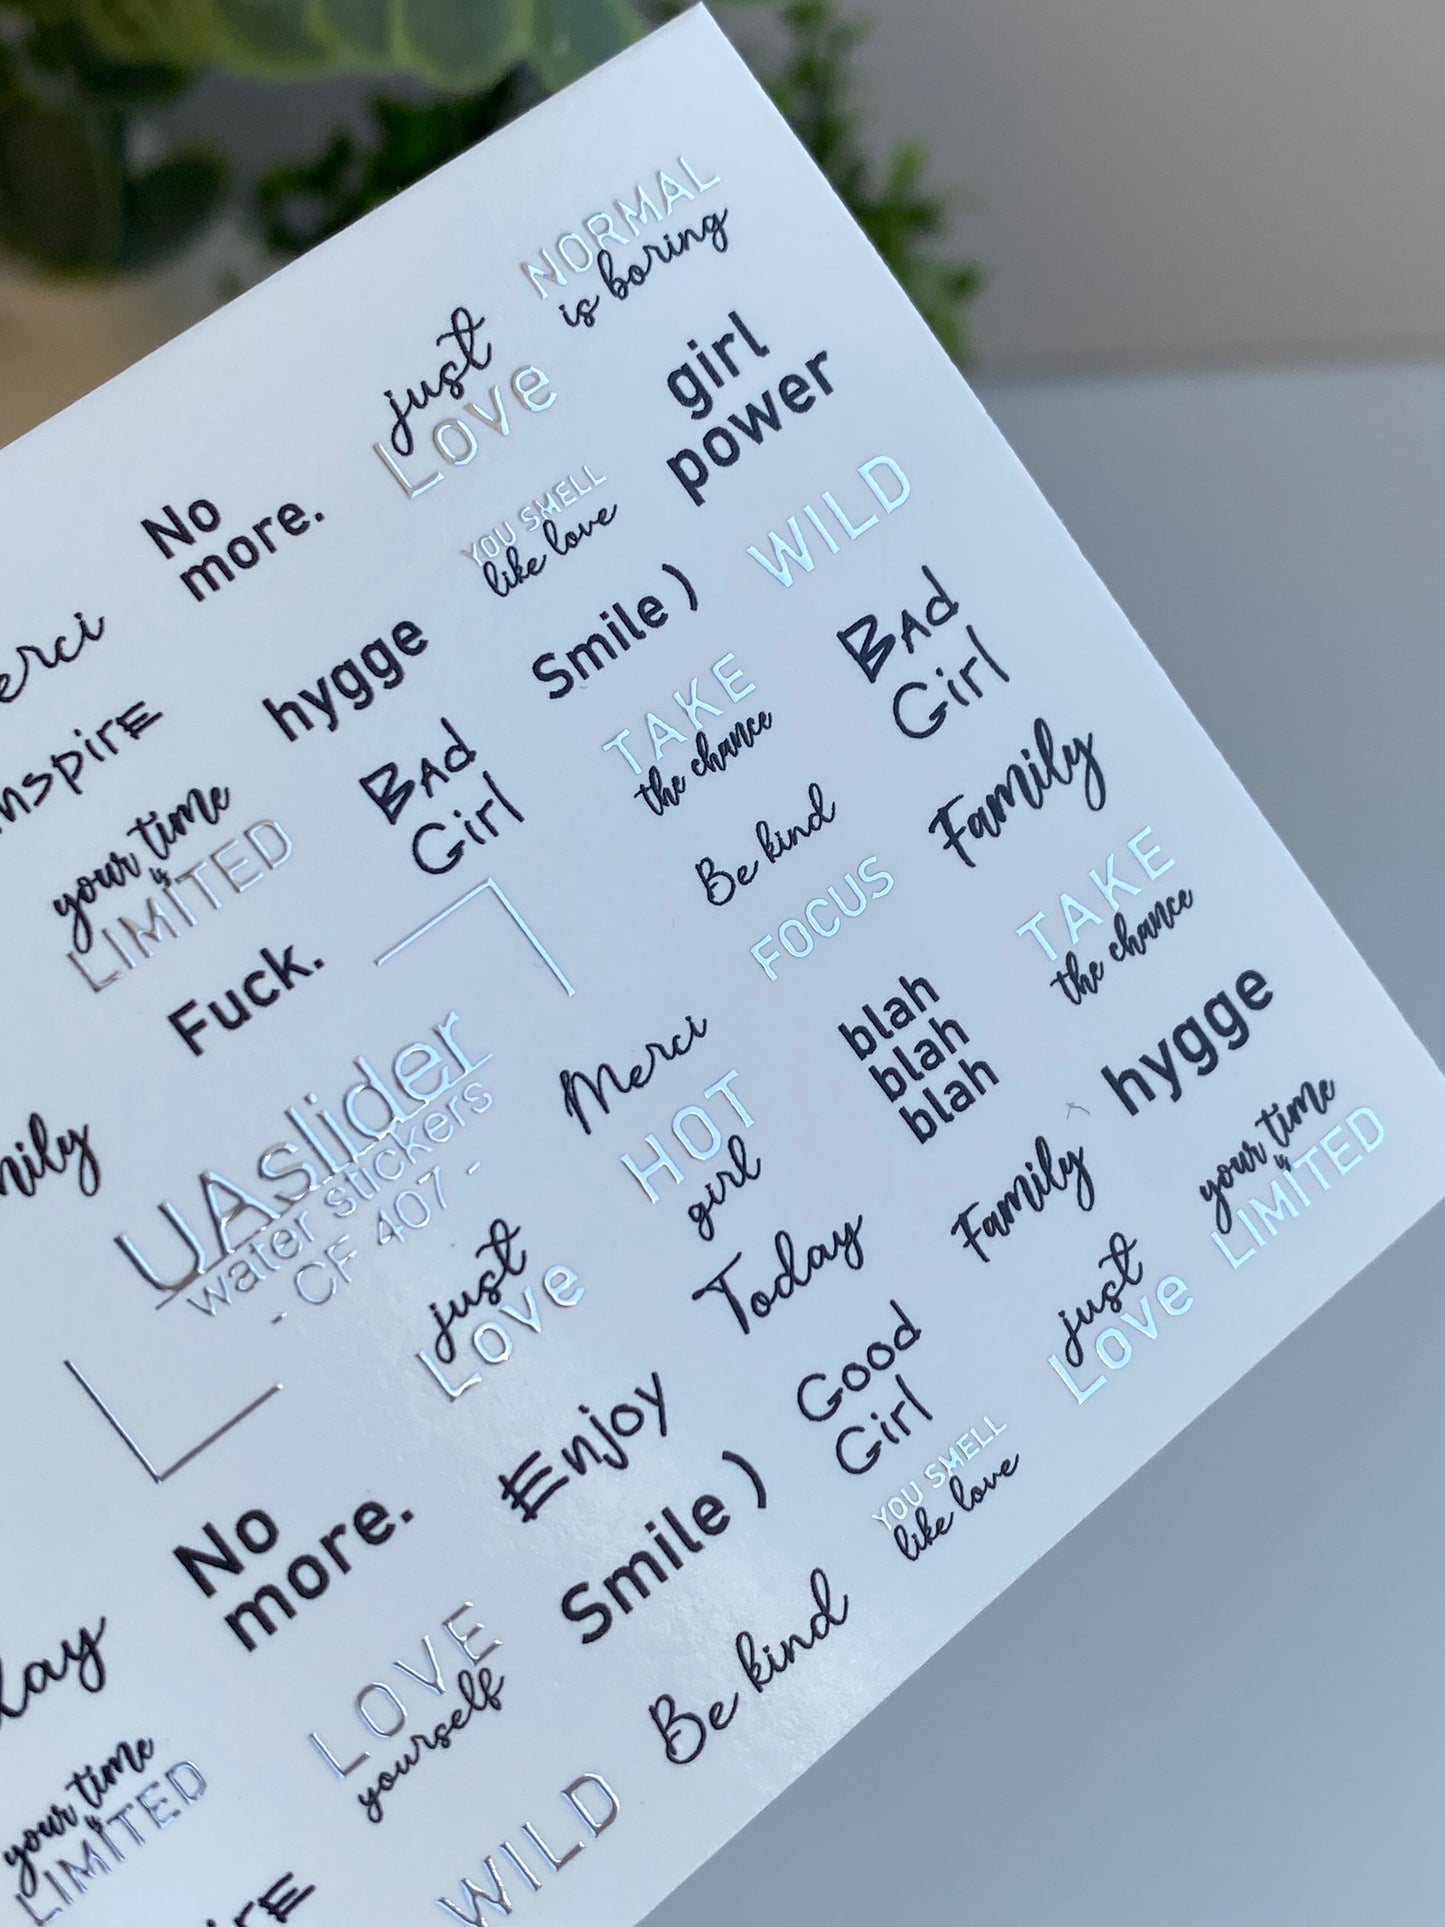 NORMAL
is boring
just
Love
girl
power
No
more.
YOU SMELL
like love
WILD
erci
hygge
Smile )
Bad
Girl
nspire
Bad
Girl
TAKE
the chance
your time
is
LIMITED
Be kind
Family
Fuck.
FOCUS
TAKE
the chance
UAslider
water stickers
- CF 407 -
Merci
blah
blah
blah
hygge
mily
HOT
girl
Family
your time
is
LIMITED
just
Love
Today
just
Love
Enjoy
Good
Girl
No
more.
Smile )
YOU SMELL
like love
day
LOVE
yourself
Be kind
your time
is
LIMITED
WILD
ire